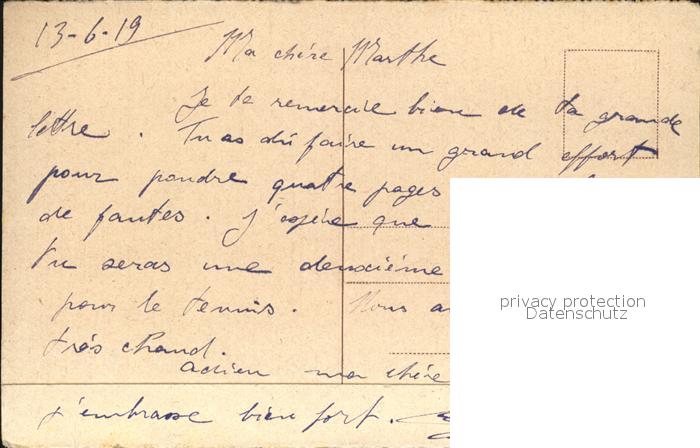 13-6-19
Ma chére Marthe
Je te remercie bien de ta grande
lettre. Tu as dû faire un grand effort
pour pondre quatre pages
de fautes. J'espère que
tu seras une deuxiéme
pour le tennis. Nous a
trés chaud.
adieu ma chére
j'embrasse bien fort.
privacy protection
Datenschutz